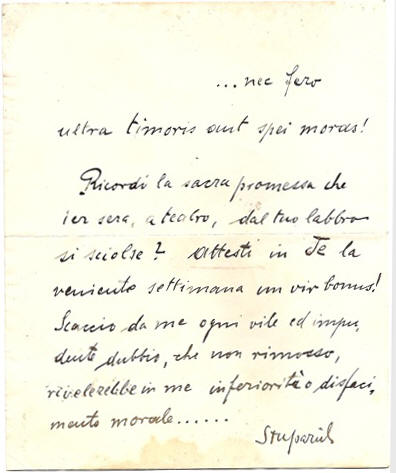 ...nec fero
ultra timoris aut spei moras!
Ricordi la sacra promessa che
ier sera, a teatro, dal tuo labbro
si sciolse? Attesti in Te la
veniente settimana un vir bonus!
Scaccio da me ogni vile ed impu,
dente dubbio, che non rimosso,
rivelerebbe in me inferiorità o disfaci,
mento morale......
Stuparich